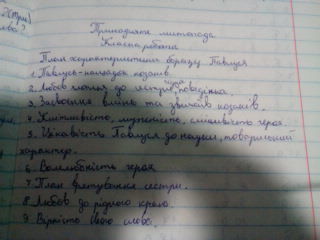 Тринадцяте листопада
Класна робота
План характеристики образу Павлуся
1. Павлусь-нащадок козаків.
2. Любов хлопця до сестри,
3. Засвоєння вмінь та звичаїв козаків.
4. Кмітливість, мужність, сміливість героя.
5. Цікавість Павлуся до науки, товариський
характер.
6. Волелюбність героя
7. План врятування сестри.
8. Любов до рідного краю.
9. Вірність свому слову.